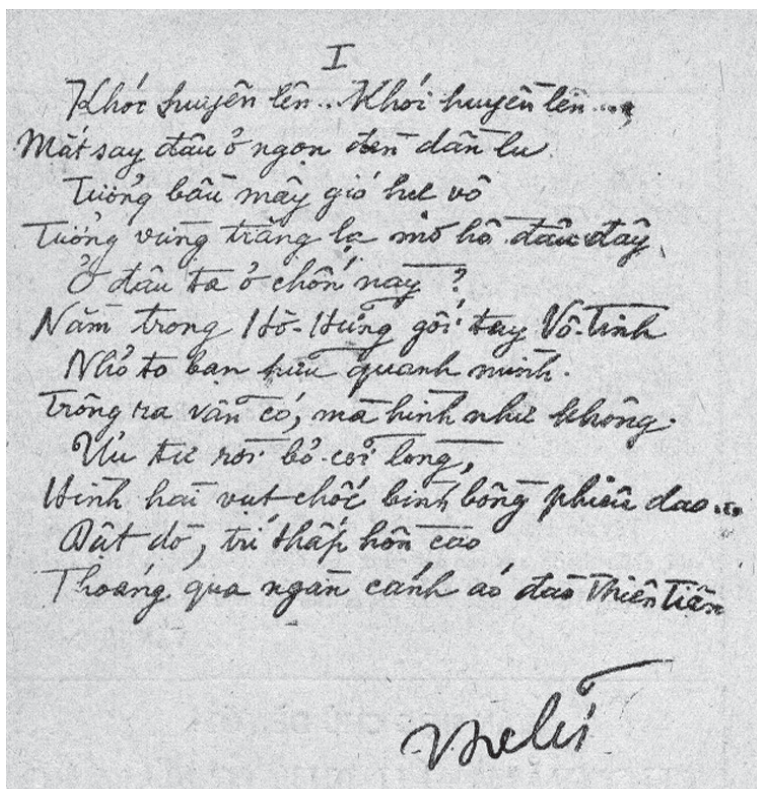 I
Khói huyền lên... Khói huyền lên...
Mắt say đâu ở ngọn đèn dần lu
Tưởng bầu mây gió hư vô
Tưởng vừng trăng lạ mơ hồ đâu đây
Ở đâu ta ở chốn này?
Nằm trong Hồ-Hưng gối tay Vô-Tình
Nhỏ to bạn hữu quanh mình.
Trông ra vẫn có, mà hình như không.
Ưu tư rời bỏ cõi lòng,
Hình hài vụt chốc bình bồng phiêu dao...
Dật dờ, trí thấp hồn cao
Thoáng qua ngàn cánh áo đào Thiên Tiên